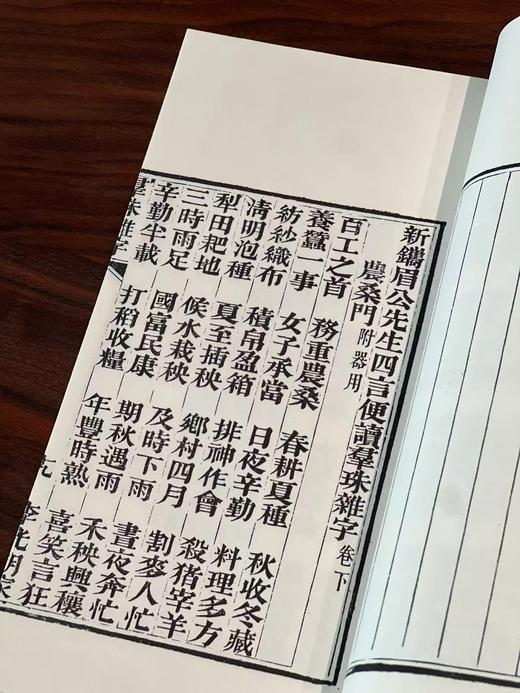 新鐫眉公先生四言便讀羣珠雜字 卷下
農桑門 附器用
百工之首 務重農桑 春耕夏種 秋收冬藏
養蠶一事 女子承當 日夜辛勤 料理多方
紡紗織布 積帛盈箱 排神作會 殺猪宰羊
淸明泡種 夏至插秧 鄉村四月 割麥人忙
犁田耙地 候水栽秧 及時下雨 晝夜奔忙
三時雨足 國富民康 期秋遇雨 禾秧興穰
辛勤半載 打稻收糧 年豐時熟 喜笑言狂
羣珠雜字 李光明家